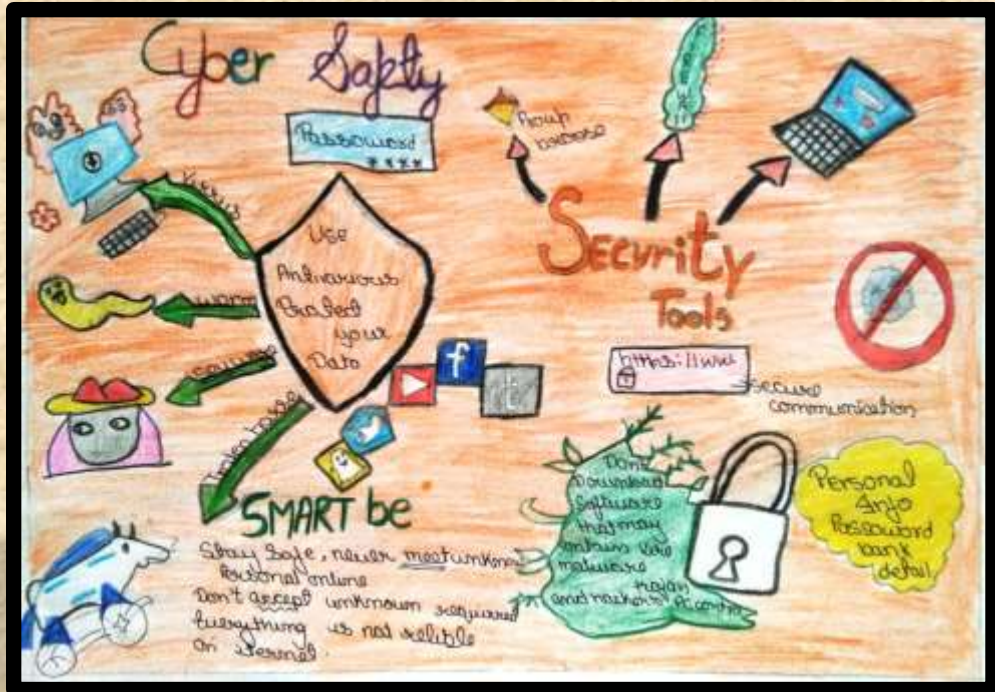 Cyber Safety
Passoword
****
Virus
Worm
Use
Antivarious
Protect
your
Data
SMART be
Stay Safe, never meet unknown
Personal online
Don't accept unknown
Everything is not relible
on iternel.
Security
Tools
https://www
secure
communication
Dont
Download
Software
that may
contains
malware
and hackers
Personal
Info
Passoword
bank
detail
f
t